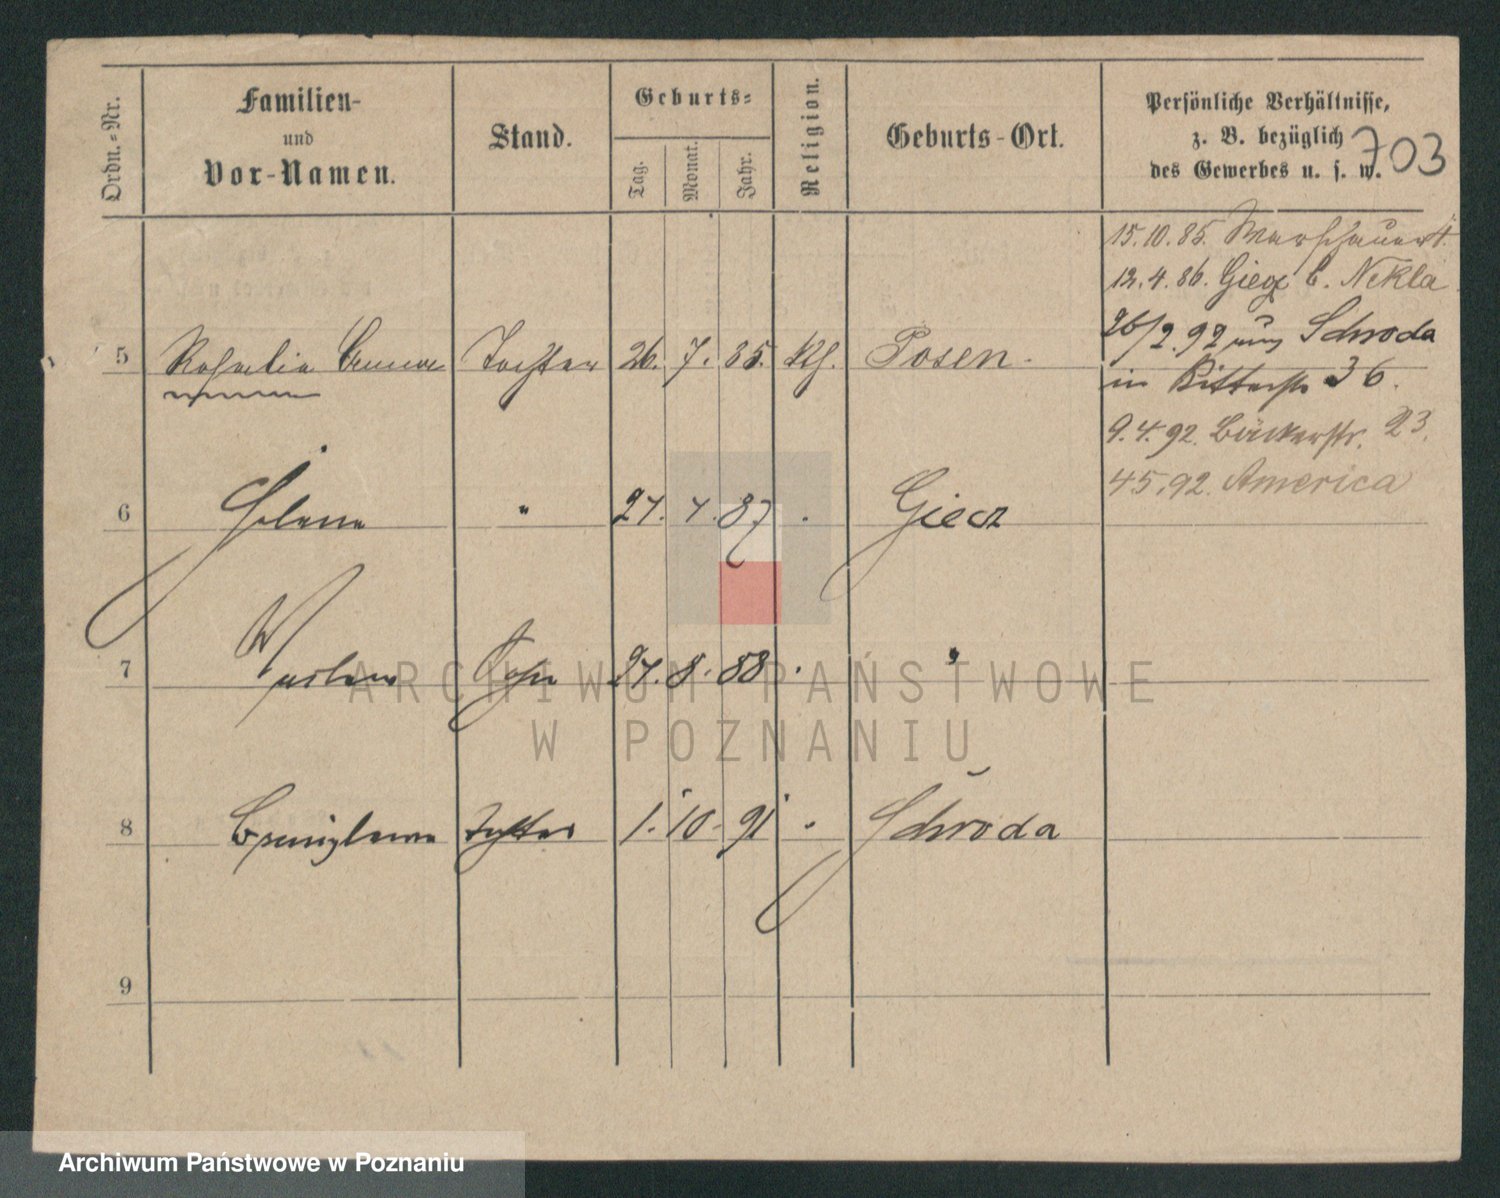 Ordn.=Nr.
Familien-
und
Vor-Namen.
Stand.
Geburts=
Tag.
Monat.
Jahr.
Religion.
Geburts-Ort.
Persönliche Verhältnisse,
z. B. bezüglich
des Gewerbes u. s. w.
703
15.10.85. Warschauerst.
12.4.86. Giecz b. Nekla
26/2.92 aus Schroda
in Ritterstr 36.
9.4.92. Bäckerstr. 23.
4 5.92. America
5 Rosalie Anna Tochter 26. 7. 85. kth. Posen.
6 Helene " 27. 4. 87 . Giecz
7 Sohn 27. 8. 88 . "
8 Tochter 1. 10. 91 . Schroda
9
ARCHIWUM PAŃSTWOWE
W POZNANIU
Archiwum Państwowe w Poznaniu